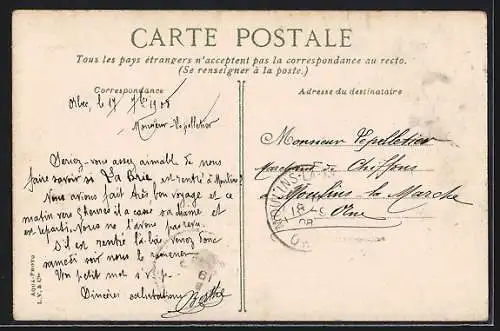 CARTE POSTALE
Tous les pays étrangers n'acceptent pas la correspondance au recto.
(Se renseigner à la poste.)
Correspondance
Adresse du destinataire
Orbec, le 17 7bre 1908
Monsieur Lepelletier
Seriez-vous assez aimable de nous
faire savoir si La Brie, est rentré à Moulins?
Nous avions fait très bon voyage et ce
matin vers 9 heures il a cassé sa et
est reparti. Nous ne l'avons pas revu.
S'il est rentré là-bas, venez donc
samedi soir nous le ramener.
Un petit mot s.v.p.
Sincères salutations
Berthe
Monsieur Lepelletier
Marchand de Chiffons
à Moulins-la-Marche
Orne
MOULINS-LA-
18 -9
08
AQUA-PHOTO
L. V. & Cie